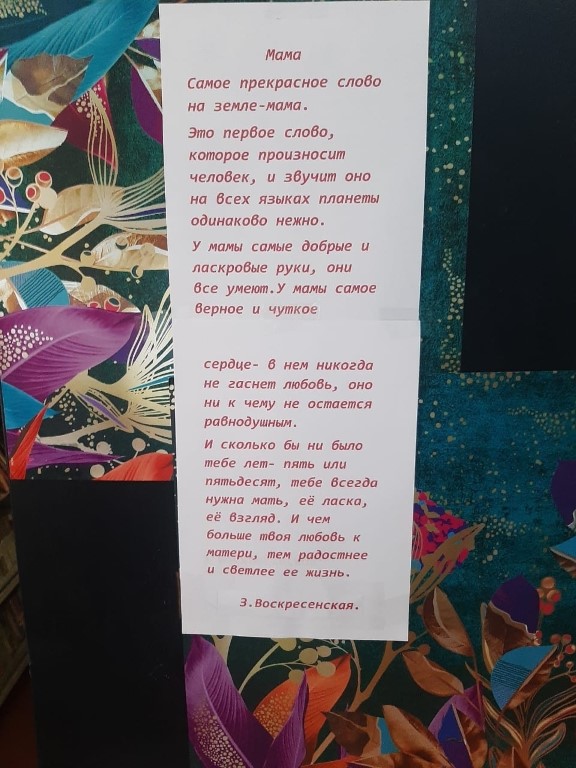 Мама
Самое прекрасное слово
на земле-мама.
Это первое слово,
которое произносит
человек, и звучит оно
на всех языках планеты
одинаково нежно.
У мамы самые добрые и
ласкровые руки, они
все умеют.У мамы самое
верное и чуткое
сердце- в нем никогда
не гаснет любовь, оно
ни к чему не остается
равнодушным.
И сколько бы ни было
тебе лет- пять или
пятьдесят, тебе всегда
нужна мать, её ласка,
её взгляд. И чем
больше твоя любовь к
матери, тем радостнее
и светлее ее жизнь.
З.Воскресенская.